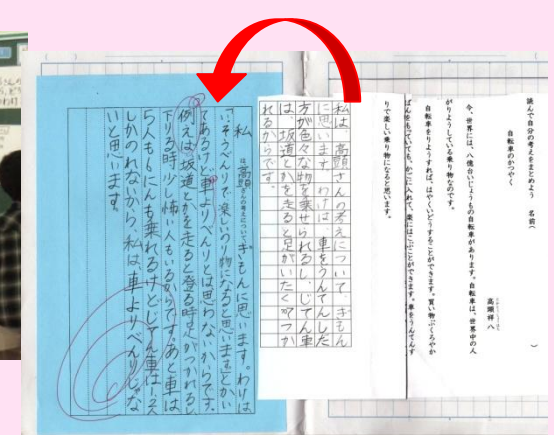 読んで自分の考えをまとめよう　名前（　）
自転車のかつやく
高頭祥八
今、世界には、八億台いじょうもの自転車があります。自転車は、世界中の人
がりようしている乗り物なのです。
自転車をりようすれば、はやくいどうすることができます。買い物ぶくろやか
ばんをもっていても、かごに入れて、楽にはこぶことができます。車をうんてんす
りで楽しい乗り物になると思います。
私は、高頭さんの考えについて、ぎもん
に思います。わけは、車をうんてんした
方が色々な物を乗せられるし、じてん車
は、坂道とかを走ると足がいたくてつか
れるからです。
私は高頭さんの考えについてぎもんに思います。わけは
っそうべんりで楽しいのり物になると思いますとかい
てあるけど車よりべんりとは思わないからです。
例えば坂道とかを走ると登る時足がつかれるし
下りる時少し怖い人もいるからです。あと車は
5人も6にんも乗れるけどじてん車は1~2人
しかのれないから、私は車よりべんりじゃな
いと思います。